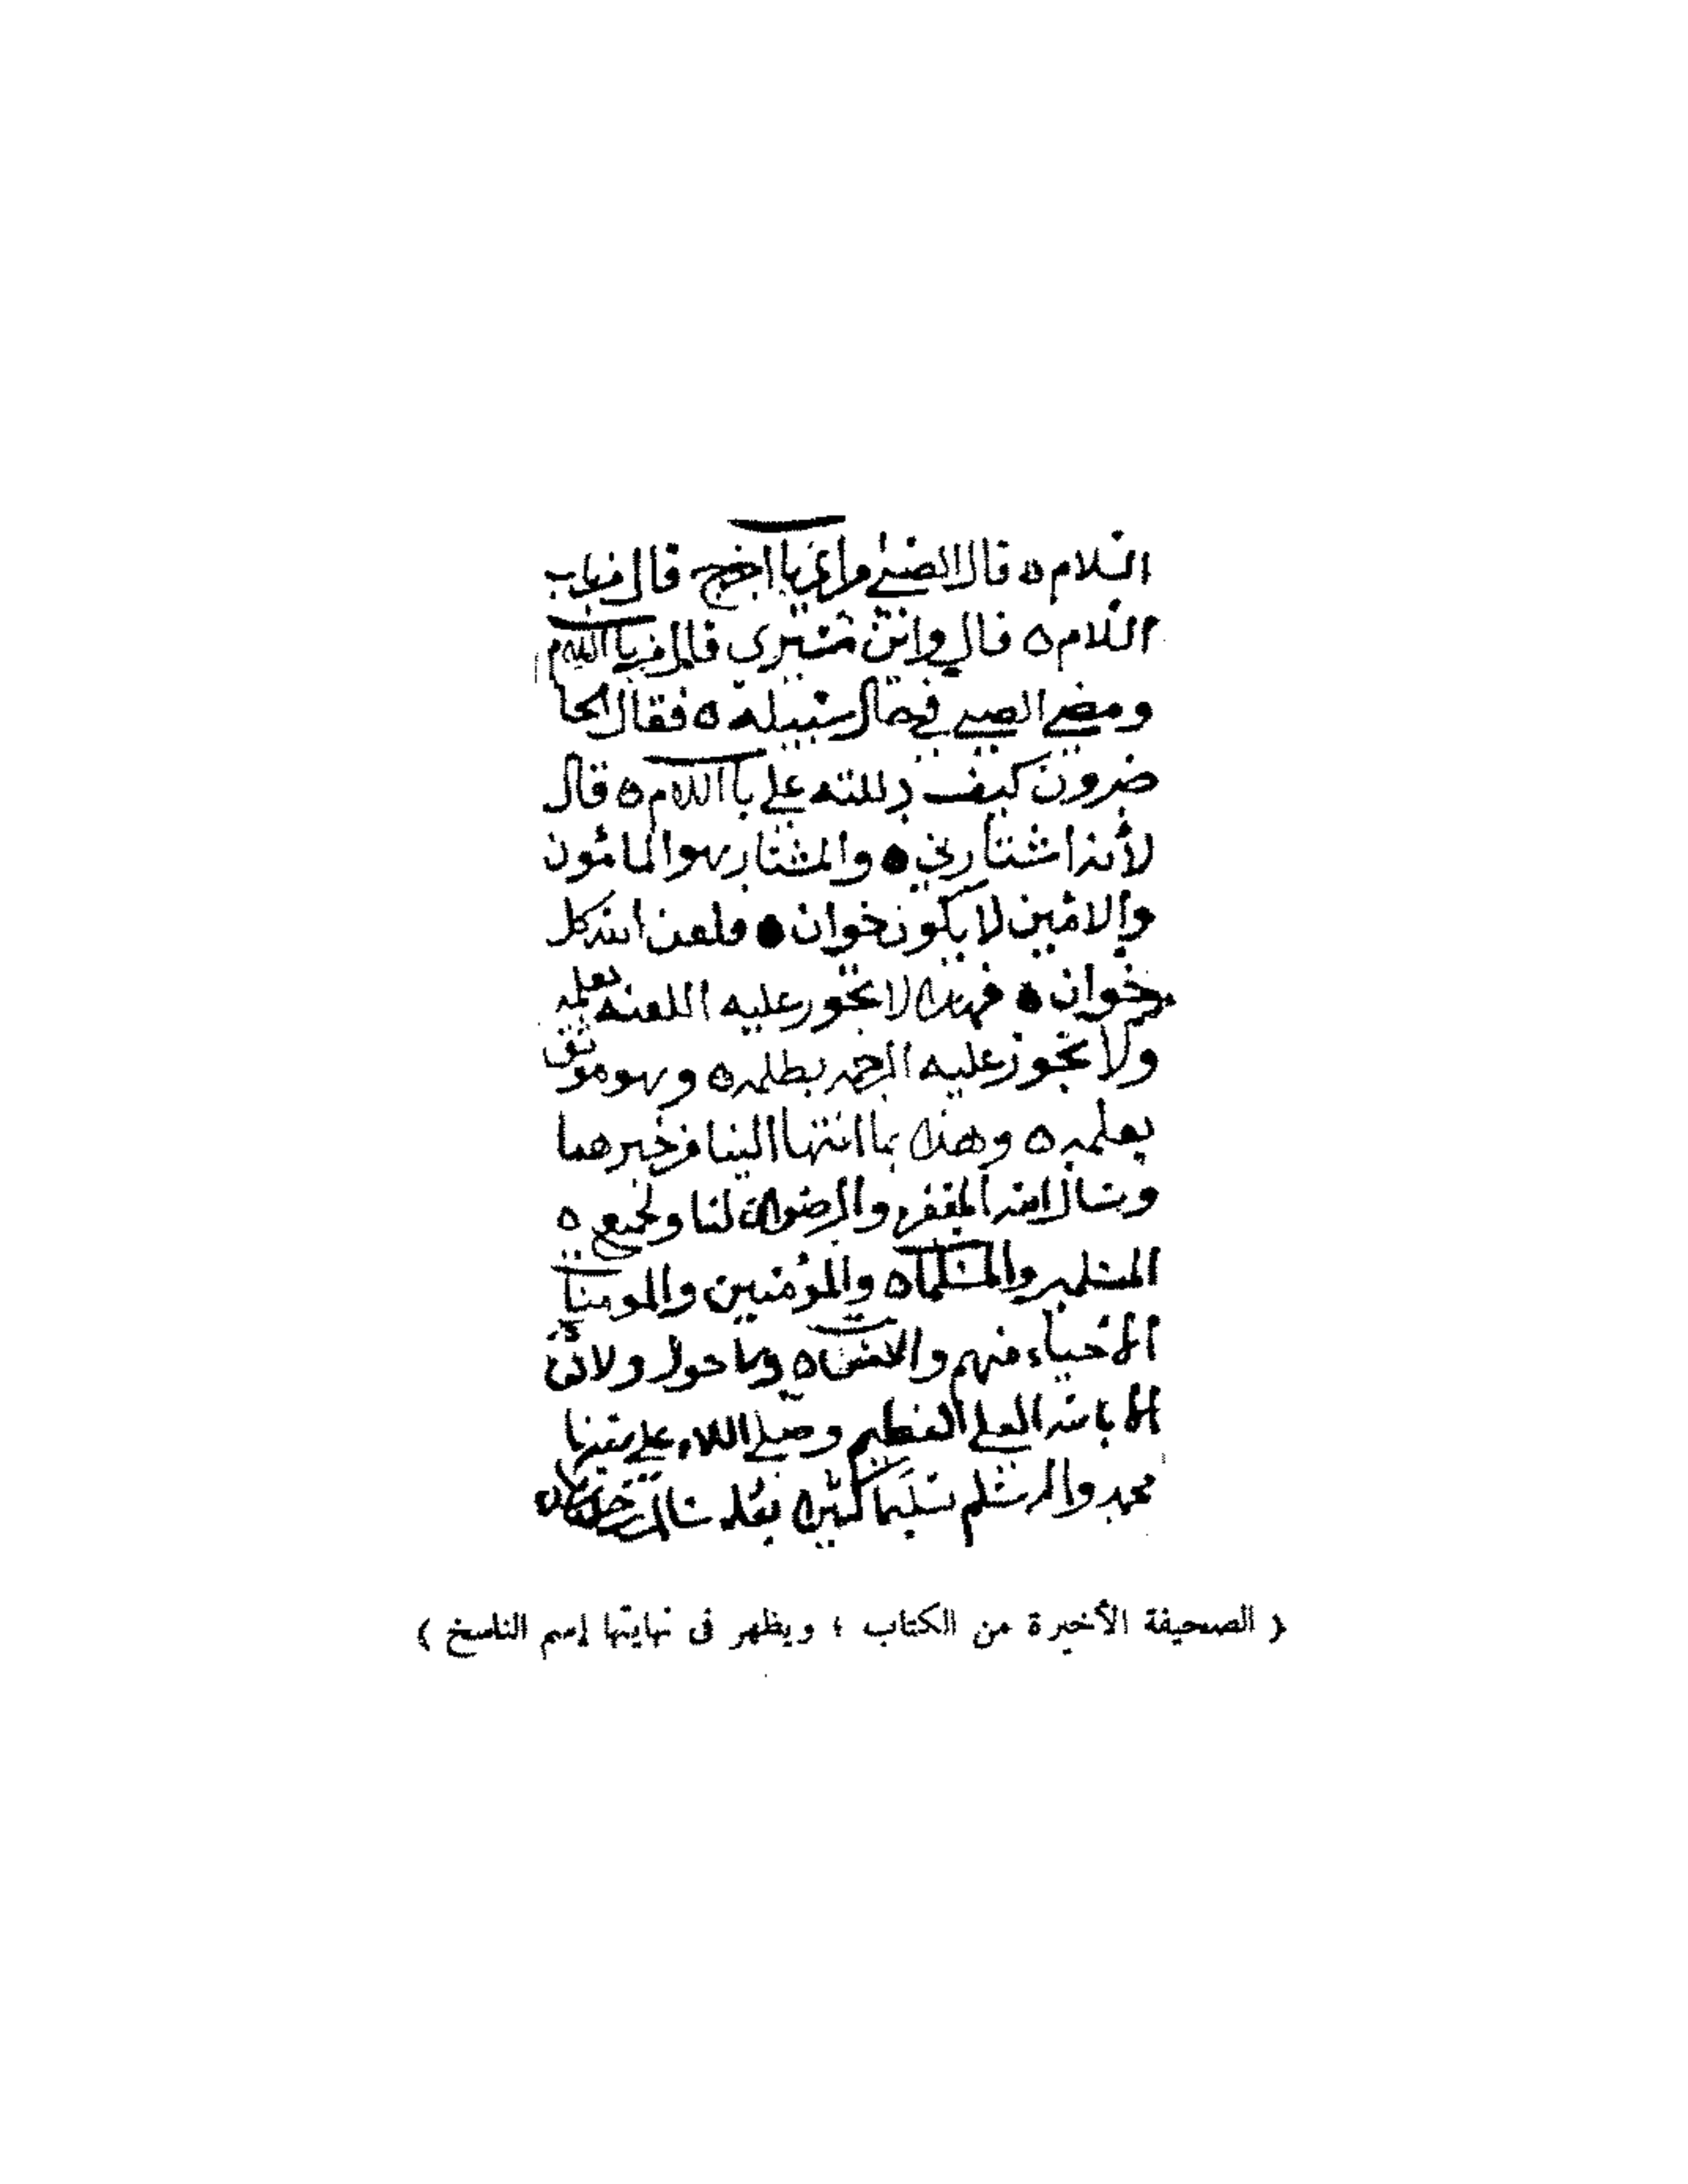 السلام ه قال الصبي وأي باب أخرج قال من باب
السلام ه قال وأين مسيري قال من باب السلام
ومضى الصبي في حال سبيله ه فقال الحا
ضرون كيف دللته على باب السلام ه قال
لأنه استشارني ه والمستشار هو المأمون
والأمين لا يكون خوان ه فلعن الله كل
خوان ه فهذا لا تجوز عليه اللعنه بعلمه
ولا تجوز عليه الرحمه بظلمه ه وهو موثق
بعلمه ه وهذا ما انتها الينا من خبرهما
ونسال الله المغفره والرضوان لنا ولجميع ه
المسلمين والمسلمات ه والمؤمنين والمومنات
الأحياء منهم والأموات ه ولا حول ولا قوة
إلا بالله العلي العظيم وصلى الله على سيدنا
محمد واله وسلم تسليما كثيرا بقلم سالم
( الصحيفة الأخيرة من الكتاب ؛ ويظهر فى نهايتها إسم الناسخ )